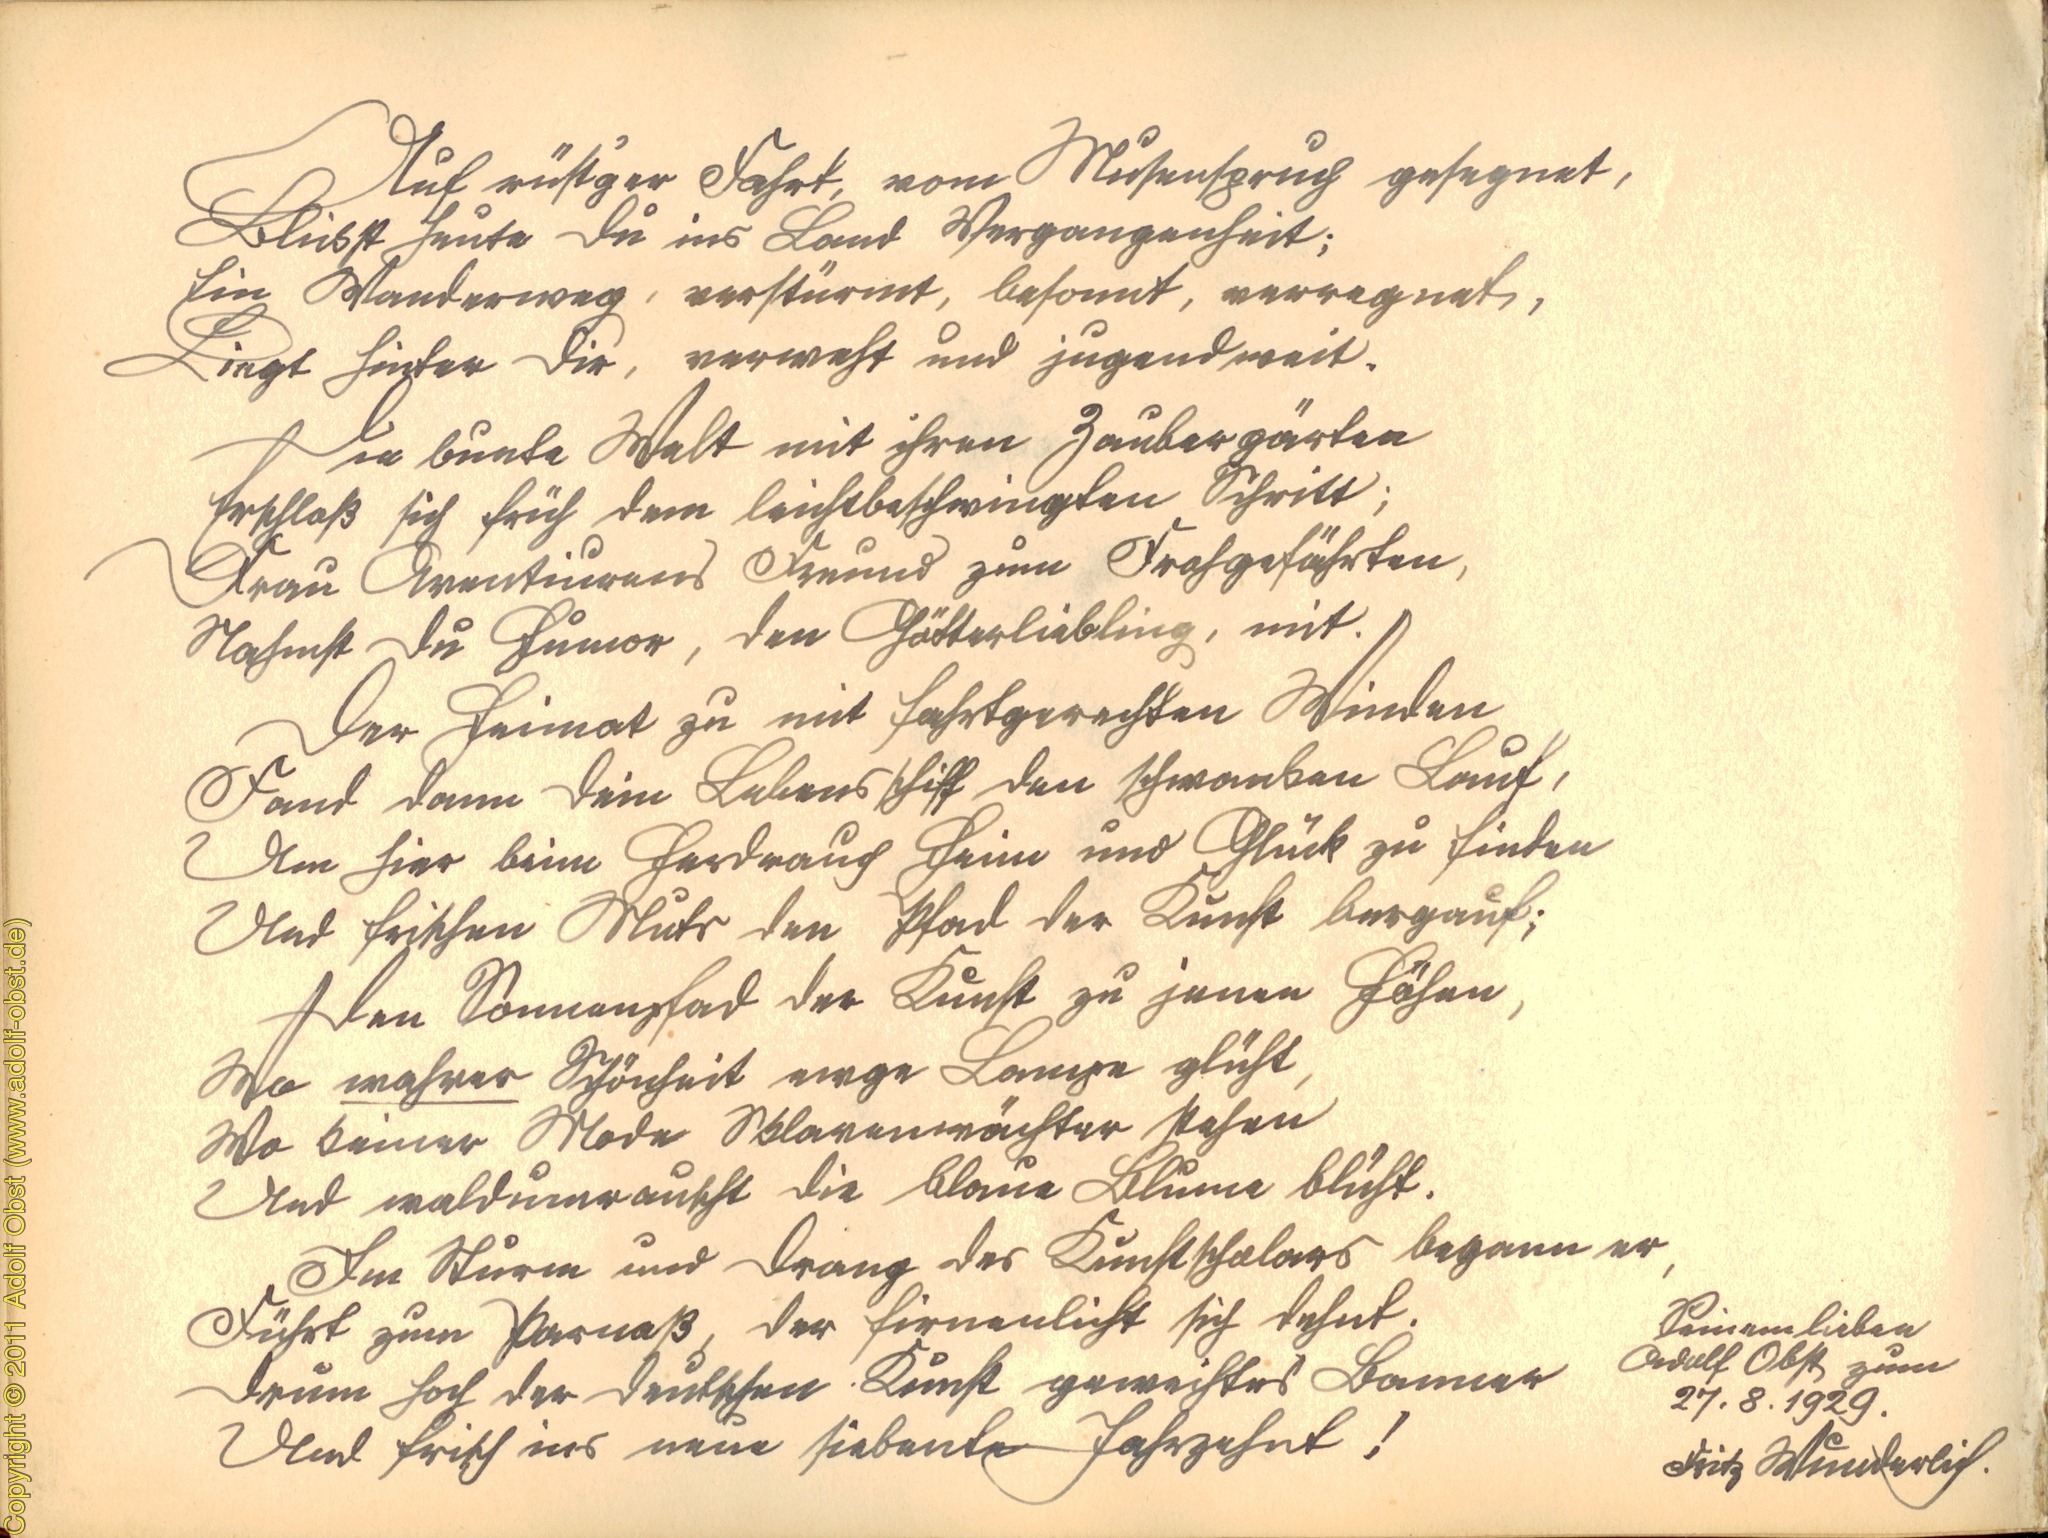 Auf rüst'ger Fahrt, vom Musenspruch gesegnet,
Blickst heute Du ins Land Vergangenheit;
Ein Wanderweg, verstürmt, besonnt, verregnet,
Liegt hinter Dir, verweht und jugendweit.
Die bunte Welt mit ihren Zaubergärten
Erschloß sich früh dem leichtbeschwingten Schritt;
Frau Aventiurens Freund zum Frohgefährten,
Nahmst Du Humor, den Götterliebling, mit.
Der Heimat zu mit fahrtgerechten Winden
Fand dann Dein Lebensschiff den schwanken Lauf,
Um hier beim Herdrauch Heim und Glück zu finden
Und frischen Muts den Pfad der Kunst bergauf;
Den Sonnenpfad der Kunst zu jenen Höhen,
Wo wahrer Schönheit ewge Lampe glüht,
Wo keiner Mode Sklavenwächter stehen
Und waldumrauscht die blaue Blume blüht.
Im Sturm und Drang des Kunstscholars begann er,
Führt zum Parnaß, der firnenlicht sich dehnt.
Drum hoch der deutschen Kunst geweihtes Banner
Und frisch ins neue siebente Jahrzehnt!
Seinem lieben
Adolf Obst zum
27. 8. 1929.
Fritz Wunderlich.
Copyright © 2011 Adolf Obst (www.adolf-obst.de)